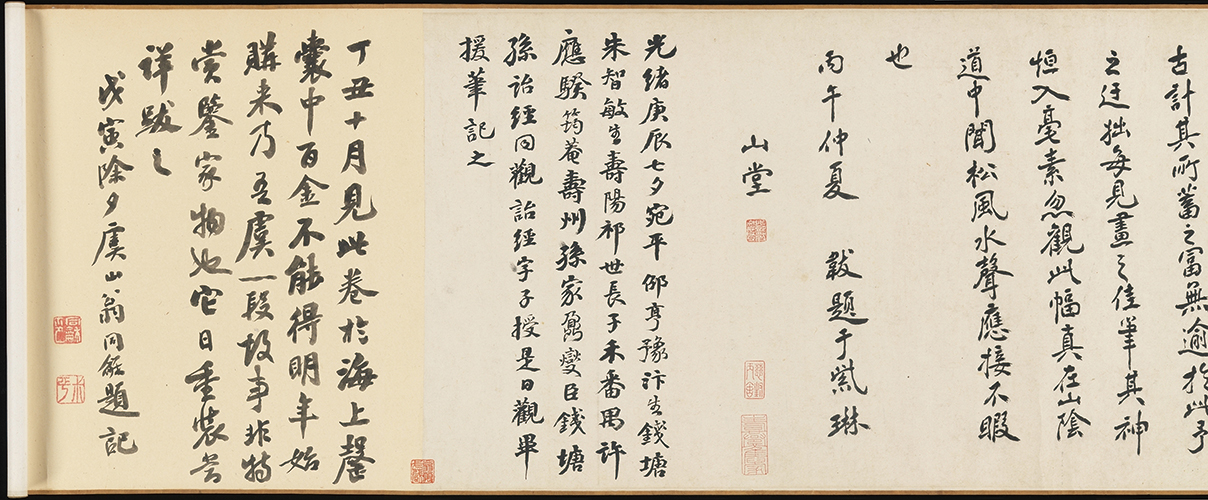 古計其所蓄之富無逾於此予
之迂拙每見畫之佳筆其神
恒入毫素忽觀此幅真在山陰
道中聞松風水聲應接不暇
也
丙午仲夏 戢題于紫琳
山堂
光緒庚辰七夕宛平邵亨豫汴生錢塘
朱智敏生壽陽祁世長子禾番禺許
應騤筠菴壽州孫家鼐燮臣錢塘
孫詒經同觀詒經字子授是日觀畢
援筆記之
丁丑十月見此卷於海上罄
囊中百金不能得明年始
購来乃吾虞一段故事非特
賞鑒家物也它日重裝當
詳跋之
戊寅除夕虞山翁同龢題記